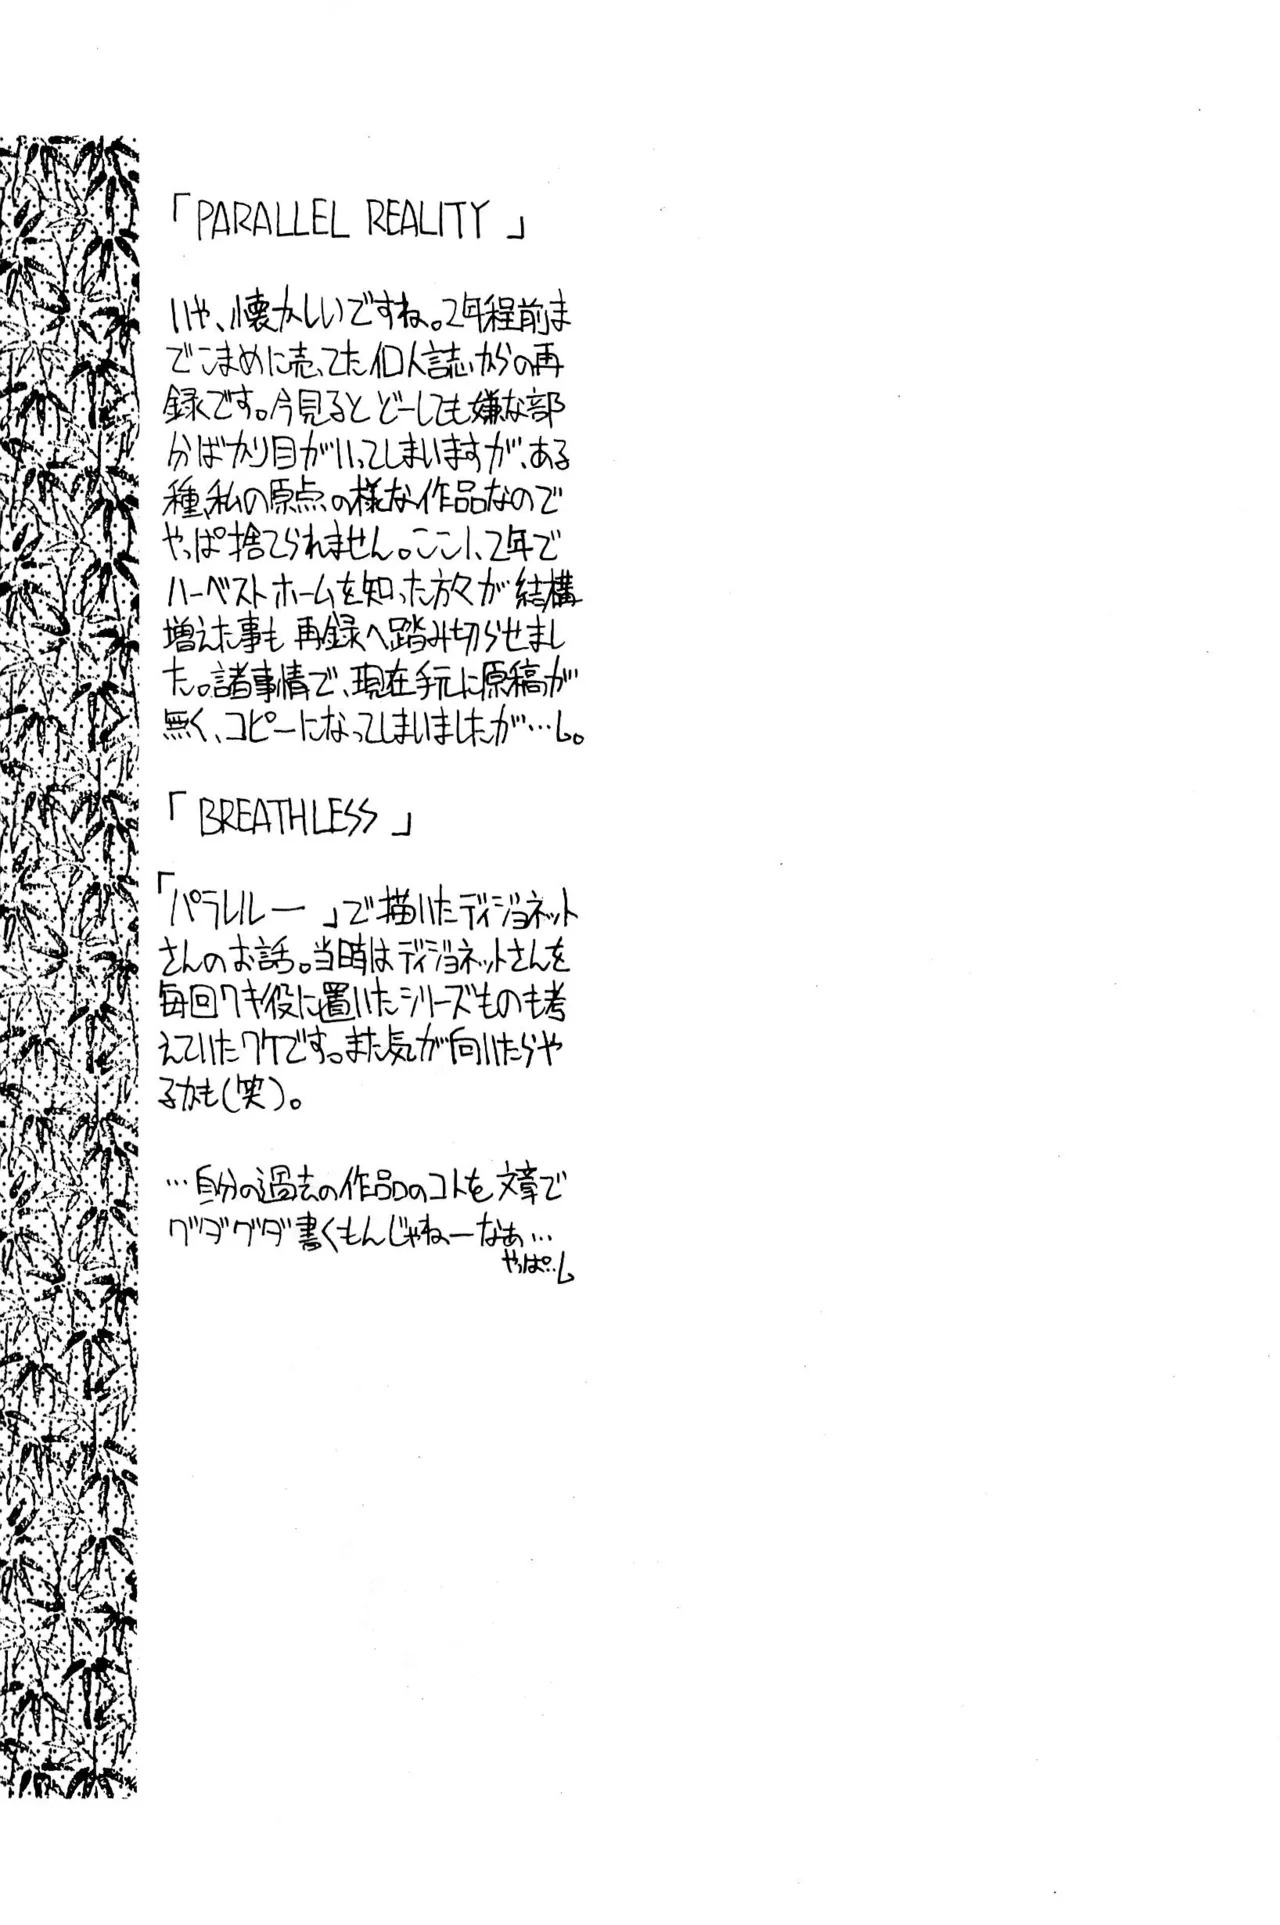 「PARALLEL REALITY」
いや、懐かしいですね。2年程前ま
でこまめに売ってた個人誌からの再
録です。今見るとどーしても嫌な部
分ばかり目がいってしまいますが、ある
種、私の原点の様な作品なので
やっぱ捨てられません。ここ1、2年で
ハーベストホームを知った方々が結構
増えた事も再録へ踏み切らせまし
た。諸事情で、現在手元に原稿が
無く、コピーになってしまいましたが…。
「BREATHLESS」
「パラレルー」で描いたディジョネット
さんのお話。当時はディジョネットさんを
毎回ワキ役に置いたシリーズものも考
えていたワケです。また気が向いたらや
るかも(笑)。
…自分の過去の作品のコトを文章で
グダグダ書くもんじゃねーなぁ…
やっぱ…